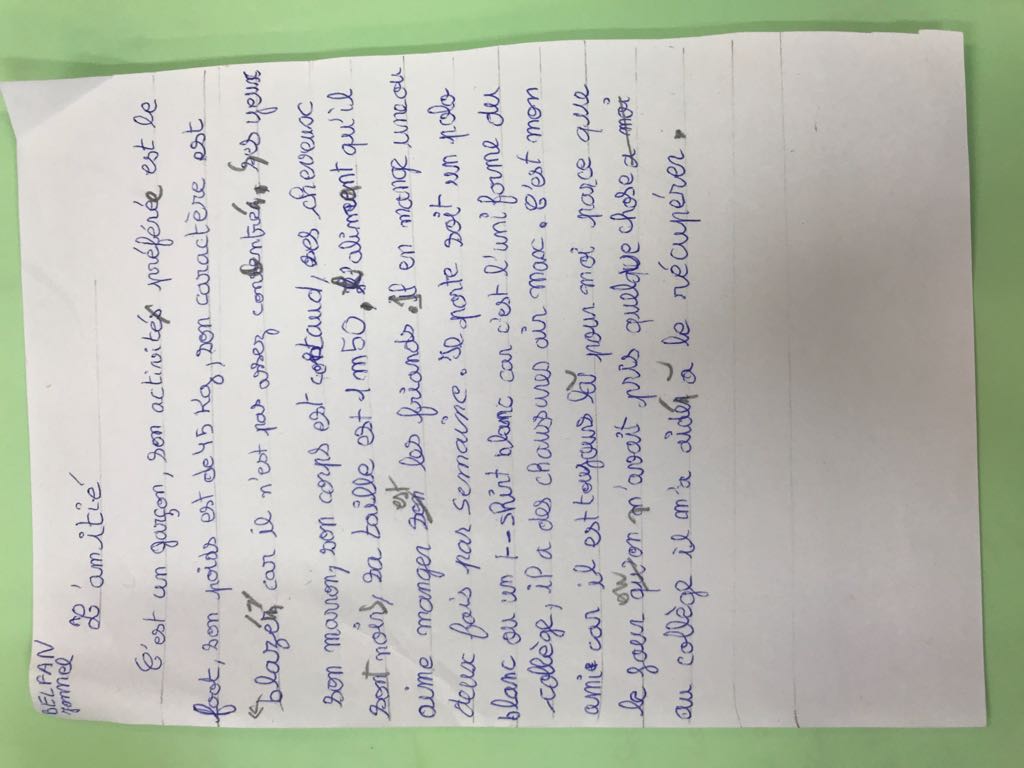 BELFAN
L'amitié
C'est un garçon, son activités préférée est le
foot, son poids est de 45 Kg, son caractère est
"blazé" car il n'est pas assez concentré, Ses yeux
son marron, son corps est costaud, ses cheveux
sont noirs, sa taille est 1m50, l'aliment qu'il
aime manger est les friands. Il en mange une ou
deux fois par semaine. Il porte soit un polo
blanc ou un t-shirt blanc car c'est l'uniforme du
collège, il a des chaussures air max. C'est mon
ami car il est toujours là pour moi parce que
le jour où on m'avait pris quelque chose a moi
au collège il m'a aidé à le récupérer.